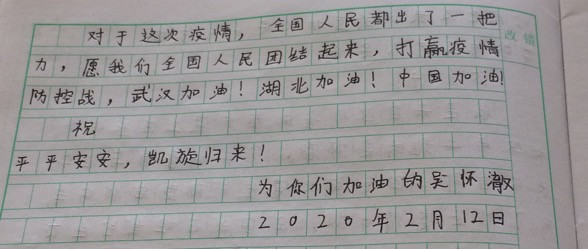 对于这次疫情，全国人民都出了一把
力，愿我们全国人民团结起来，打赢疫情
防控战，武汉加油！湖北加油！中国加油！
祝
平平安安，凯旋归来！
为你们加油的吴怀澈
2020年2月12日
改错